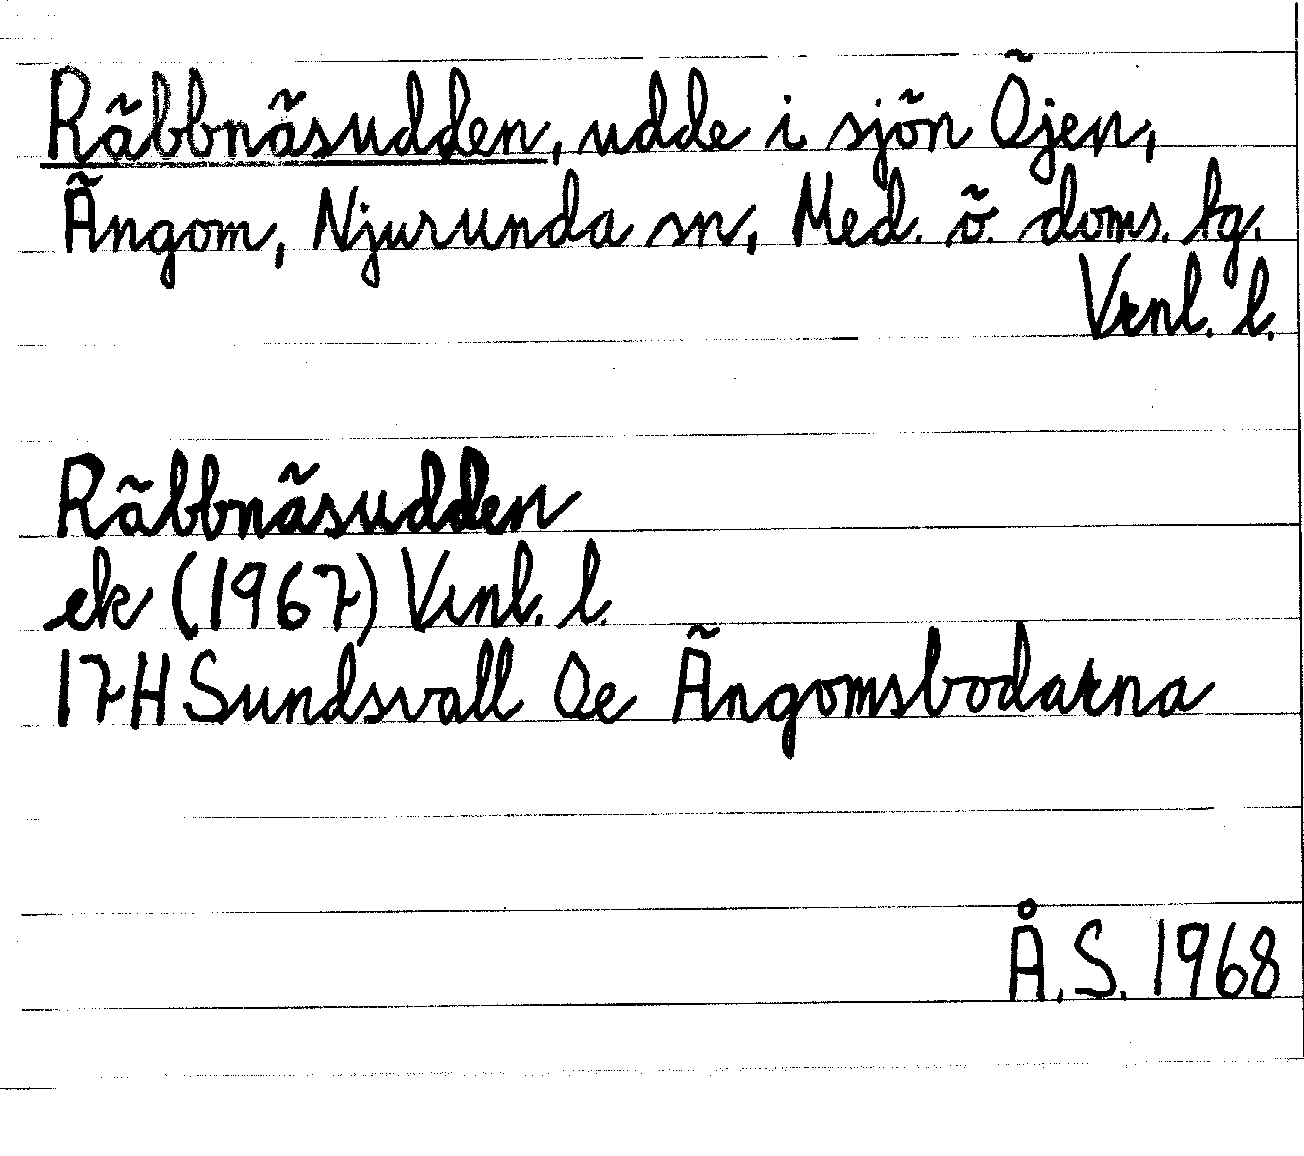 Räbbnäsudden, udde i sjön Öjen,
Ängom, Njurunda sn, Med. ö. doms. lg.
Vrnl. l.
Räbbnäsudden
ek (1967) Vrnl. l.
17H Sundsvall Oe Ängomsbodarna
Å.S. 1968